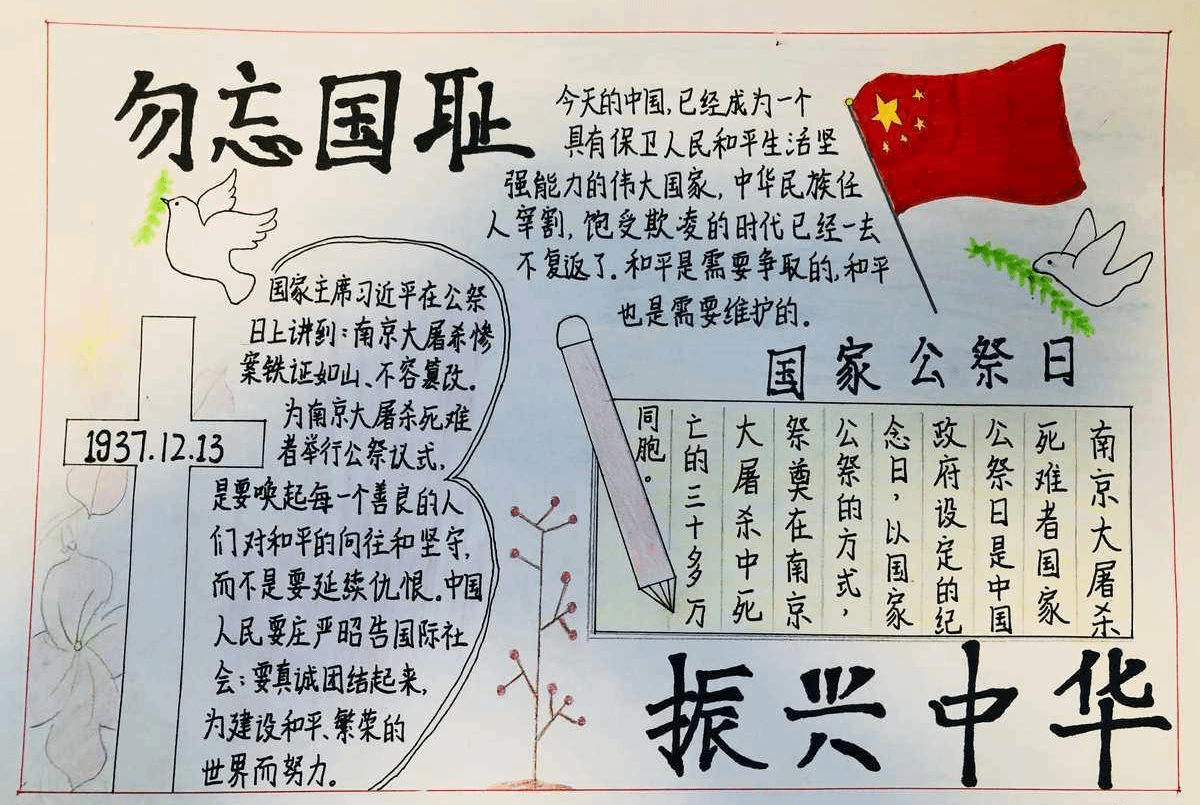 勿忘国耻
今天的中国,已经成为一个
具有保卫人民和平生活坚
强能力的伟大国家,中华民族任
人宰割,饱受欺凌的时代已经一去
不复返了。和平是需要争取的,和平
也是需要维护的。
国家主席习近平在公祭
日上讲到:南京大屠杀惨
案铁证如山、不容篡改。
为南京大屠杀死难
者举行公祭仪式,
是要唤起每一个善良的人
们对和平的向往和坚守,
而不是要延续仇恨。中国
人民要庄严昭告国际社
会:要真诚团结起来,
为建设和平、繁荣的
世界而努力。
1937.12.13
国家公祭日
南京大屠杀
死难者国家
公祭日是中国
政府设定的纪
念日,以国家
公祭的方式,
祭奠在南京
大屠杀中死
亡的三十多万
同胞。
振兴中华